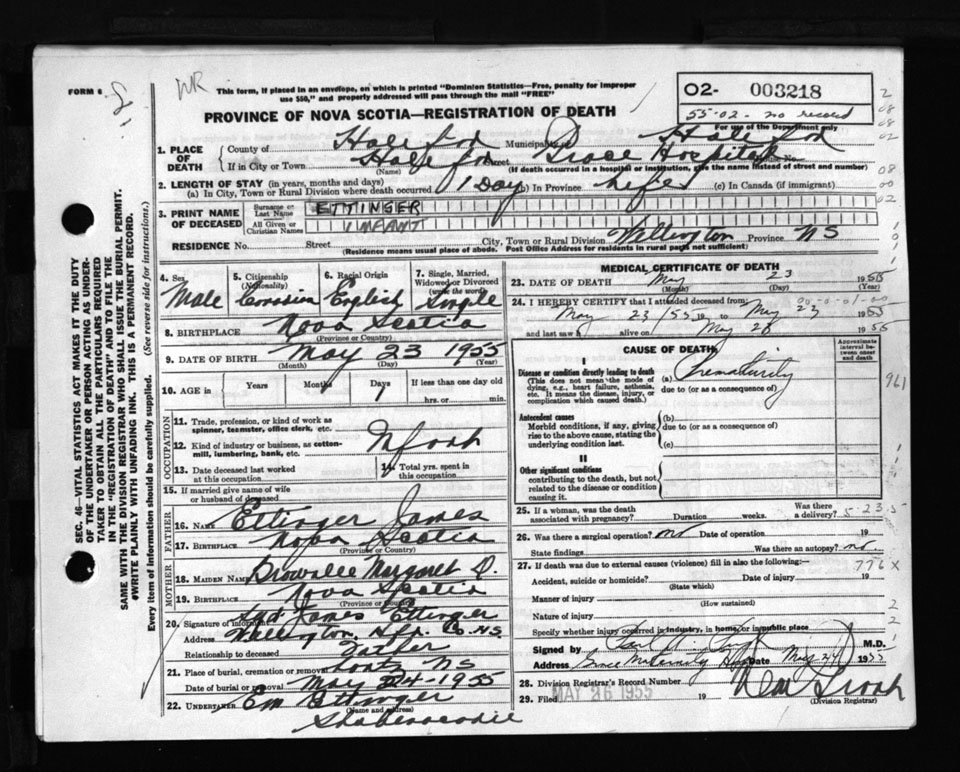 FORM 6
WR
This form, if placed in an envelope, on which is printed "Dominion Statistics—Free, penalty for improper
use $50," and properly addressed will pass through the mail "FREE"
PROVINCE OF NOVA SCOTIA—REGISTRATION OF DEATH
O2- 003218
55-02- no record
For use of the Department only
1. PLACE OF DEATH
County of Halifax Municipality Halifax
If in City or Town Halifax Street Grace Hospital No.
(Name) (If death occurred in a hospital or institution, give the name instead of street and number)
2. LENGTH OF STAY (in years, months and days)
(a) In City, Town or Rural Division where death occurred 1 Day (b) In Province life (c) In Canada (if immigrant)
3. PRINT NAME OF DECEASED
Surname or Last Name ETTINGER
All Given or Christian Names INFANT
RESIDENCE No. Street City, Town or Rural Division Wellington Province NS
(Residence means usual place of abode. Post Office Address for residents in rural parts not sufficient)
4. Sex Male
5. Citizenship (Nationality) Canadian
6. Racial Origin English
7. Single, Married, Widowed or Divorced (write the word) Single
8. BIRTHPLACE Nova Scotia
(Province or Country)
9. DATE OF BIRTH May 23 1955
(Month) (Day) (Year)
10. AGE in Years Months Days 1 If less than one day old
hrs. or min.
OCCUPATION
11. Trade, profession, or kind of work as
spinner, teamster, office clerk, etc.
12. Kind of industry or business, as cotton-
mill, lumbering, bank, etc.
13. Date deceased last worked
at this occupation
14. Total yrs. spent in
this occupation
15. If married give name of wife
or husband of deceased
FATHER
16. Name Ettinger James
17. Birthplace Nova Scotia
(Province or Country)
MOTHER
18. MAIDEN NAME Margaret D.
19. Birthplace Nova Scotia
(Province or Country)
20. Signature of informant James Ettinger
Address Wellington, Hfx. Co. NS
Relationship to deceased Father
21. Place of burial, cremation or removal Lantz NS
Date of burial or removal May 24-1955
22. UNDERTAKER Em Ettinger
(Name and address)
Shubenacadie
MEDICAL CERTIFICATE OF DEATH
23. DATE OF DEATH May 23 1955
(Month) (Day) (Year)
24. I HEREBY CERTIFY that I attended deceased from:
May 23/55 19 to May 23 1955
and last saw h alive on May 23 1955
CAUSE OF DEATH
Approximate interval between onset and death
I
Disease or condition directly leading to death (a) Prematurity
(This does not mean the mode of
dying, e.g., heart failure, asthenia,
etc. It means the disease, injury, or
complication which caused death.)
due to (or as a consequence of)
Antecedent causes (b)
Morbid conditions, if any, giving
rise to the above cause, stating the
underlying condition last.
due to (or as a consequence of)
(c)
II
Other significant conditions
contributing to the death, but not
related to the disease or condition
causing it.
961
25. If a woman, was the death
associated with pregnancy? Duration weeks. Was there
a delivery?
5-23.5
26. Was there a surgical operation? no Date of operation 19
State findings Was there an autopsy? no.
27. If death was due to external causes (violence) fill in also the following:—
776 X
Accident, suicide or homicide? Date of injury 19
(State which)
Manner of injury
(How sustained)
Nature of injury
Specify whether injury occurred in industry, in home, or in public place
Signed by M.D.
Address Grace Maternity Hosp Date May 24 1955
28. Division Registrar's Record Number
29. Filed MAY 26 1955 19
(Division Registrar)
SEC. 46—VITAL STATISTICS ACT MAKES IT THE DUTY
OF THE UNDERTAKER OR PERSON ACTING AS UNDER-
TAKER TO OBTAIN ALL THE PARTICULARS REQUIRED
IN THE "REGISTRATION OF DEATH" AND TO FILE THE
SAME WITH THE DIVISION REGISTRAR WHO SHALL ISSUE THE BURIAL PERMIT.
WRITE PLAINLY WITH UNFADING INK. THIS IS A PERMANENT RECORD.
Every item of information should be carefully supplied. (See reverse side for instructions.)